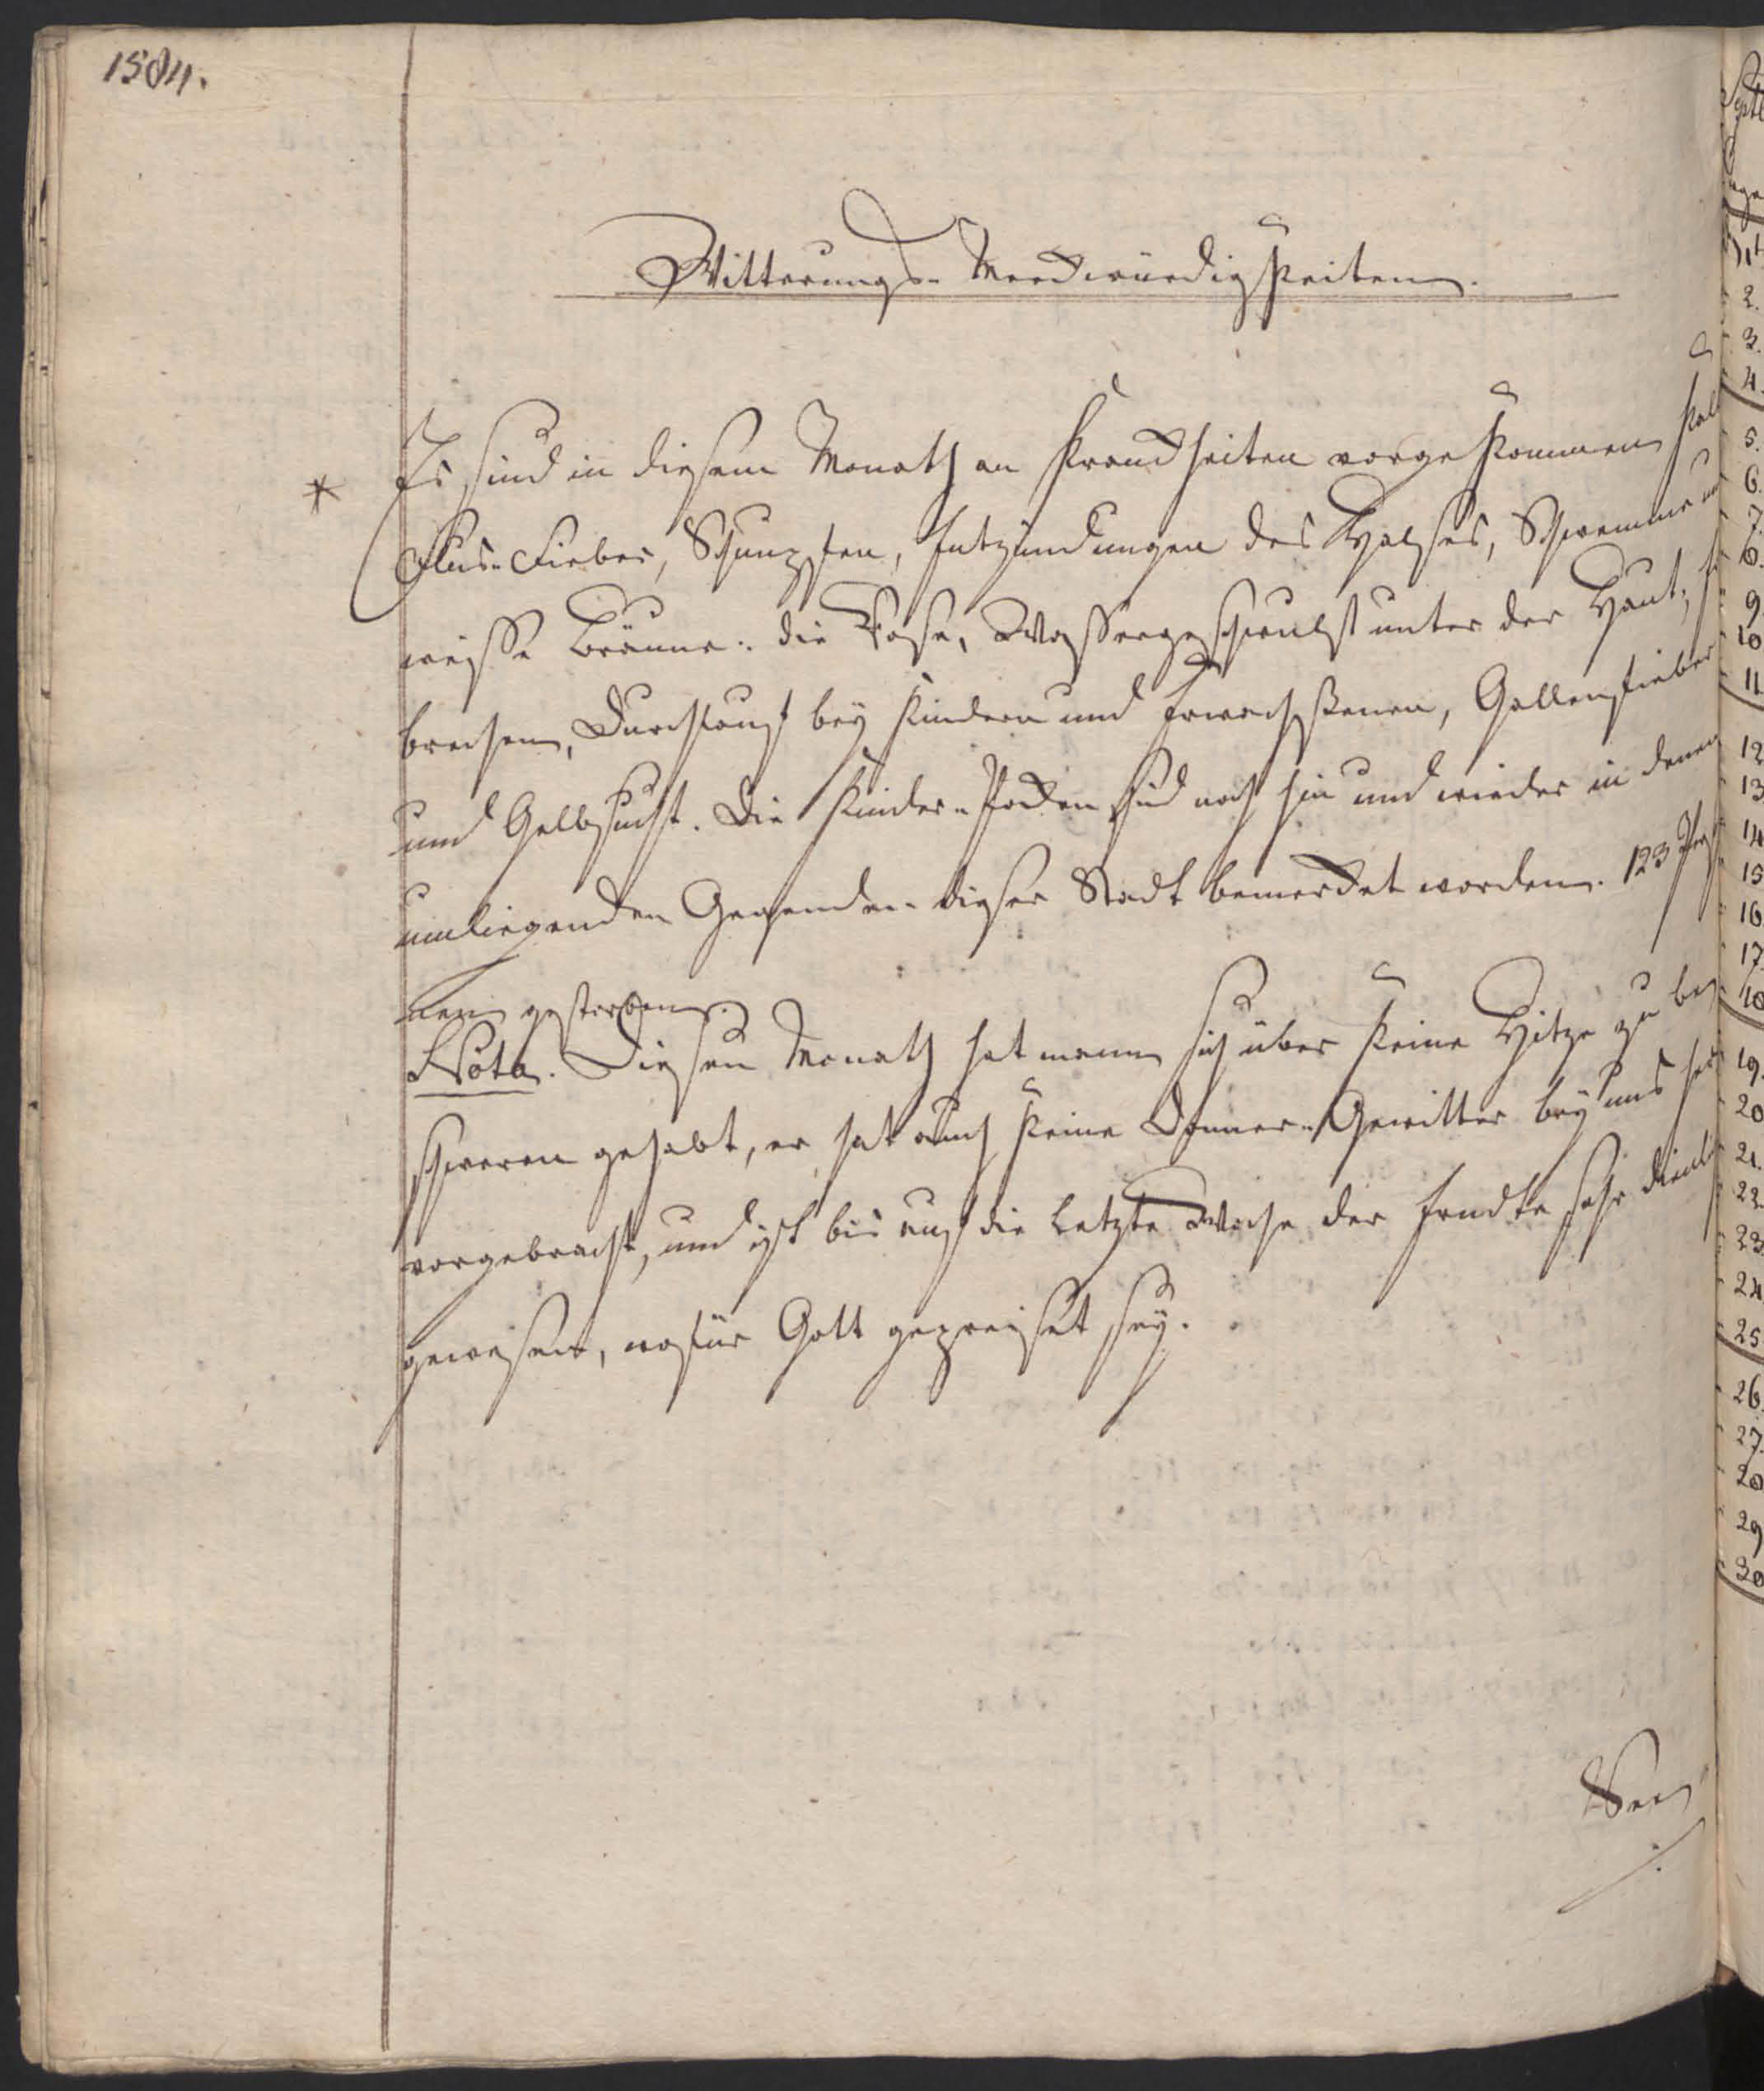 1584.
Witterungs-Merckwürdigkeiten.
* Es sind in diesem Monath an Kranckheiten vorgekommen kal
Flus-Fieber, Schnupffen, Entzündungen des Halses, Schwämme u
weisse Bräune. die Rose, Wassergeschwulst unter der Haut,
brechen, Durchlauf bey Kindern und Erwachssenen, Gallenfieber
und Gelbsucht. Die Kinder-Pocken sind noch hin und wieder in denen
umliegenden Gegenden dieser Stadt bemercket worden. 123 Perso
nen gestorben.
Nota. Diesen Monath hat mann sich über keine Hitze zu be
schweren gehabt, er hat auch keine Donner-Gewitter bey uns her
vorgebracht, und ist bis auf die letzte Woche der Erndte sehr dienl
gewesen, wofür Gott gepreiset sey.
2.
3.
4.
5.
6.
7.
8.
9
10
11
12
13
14
15
16
17
18
19.
20
21.
22
23
24
25
26.
27.
28
29
30